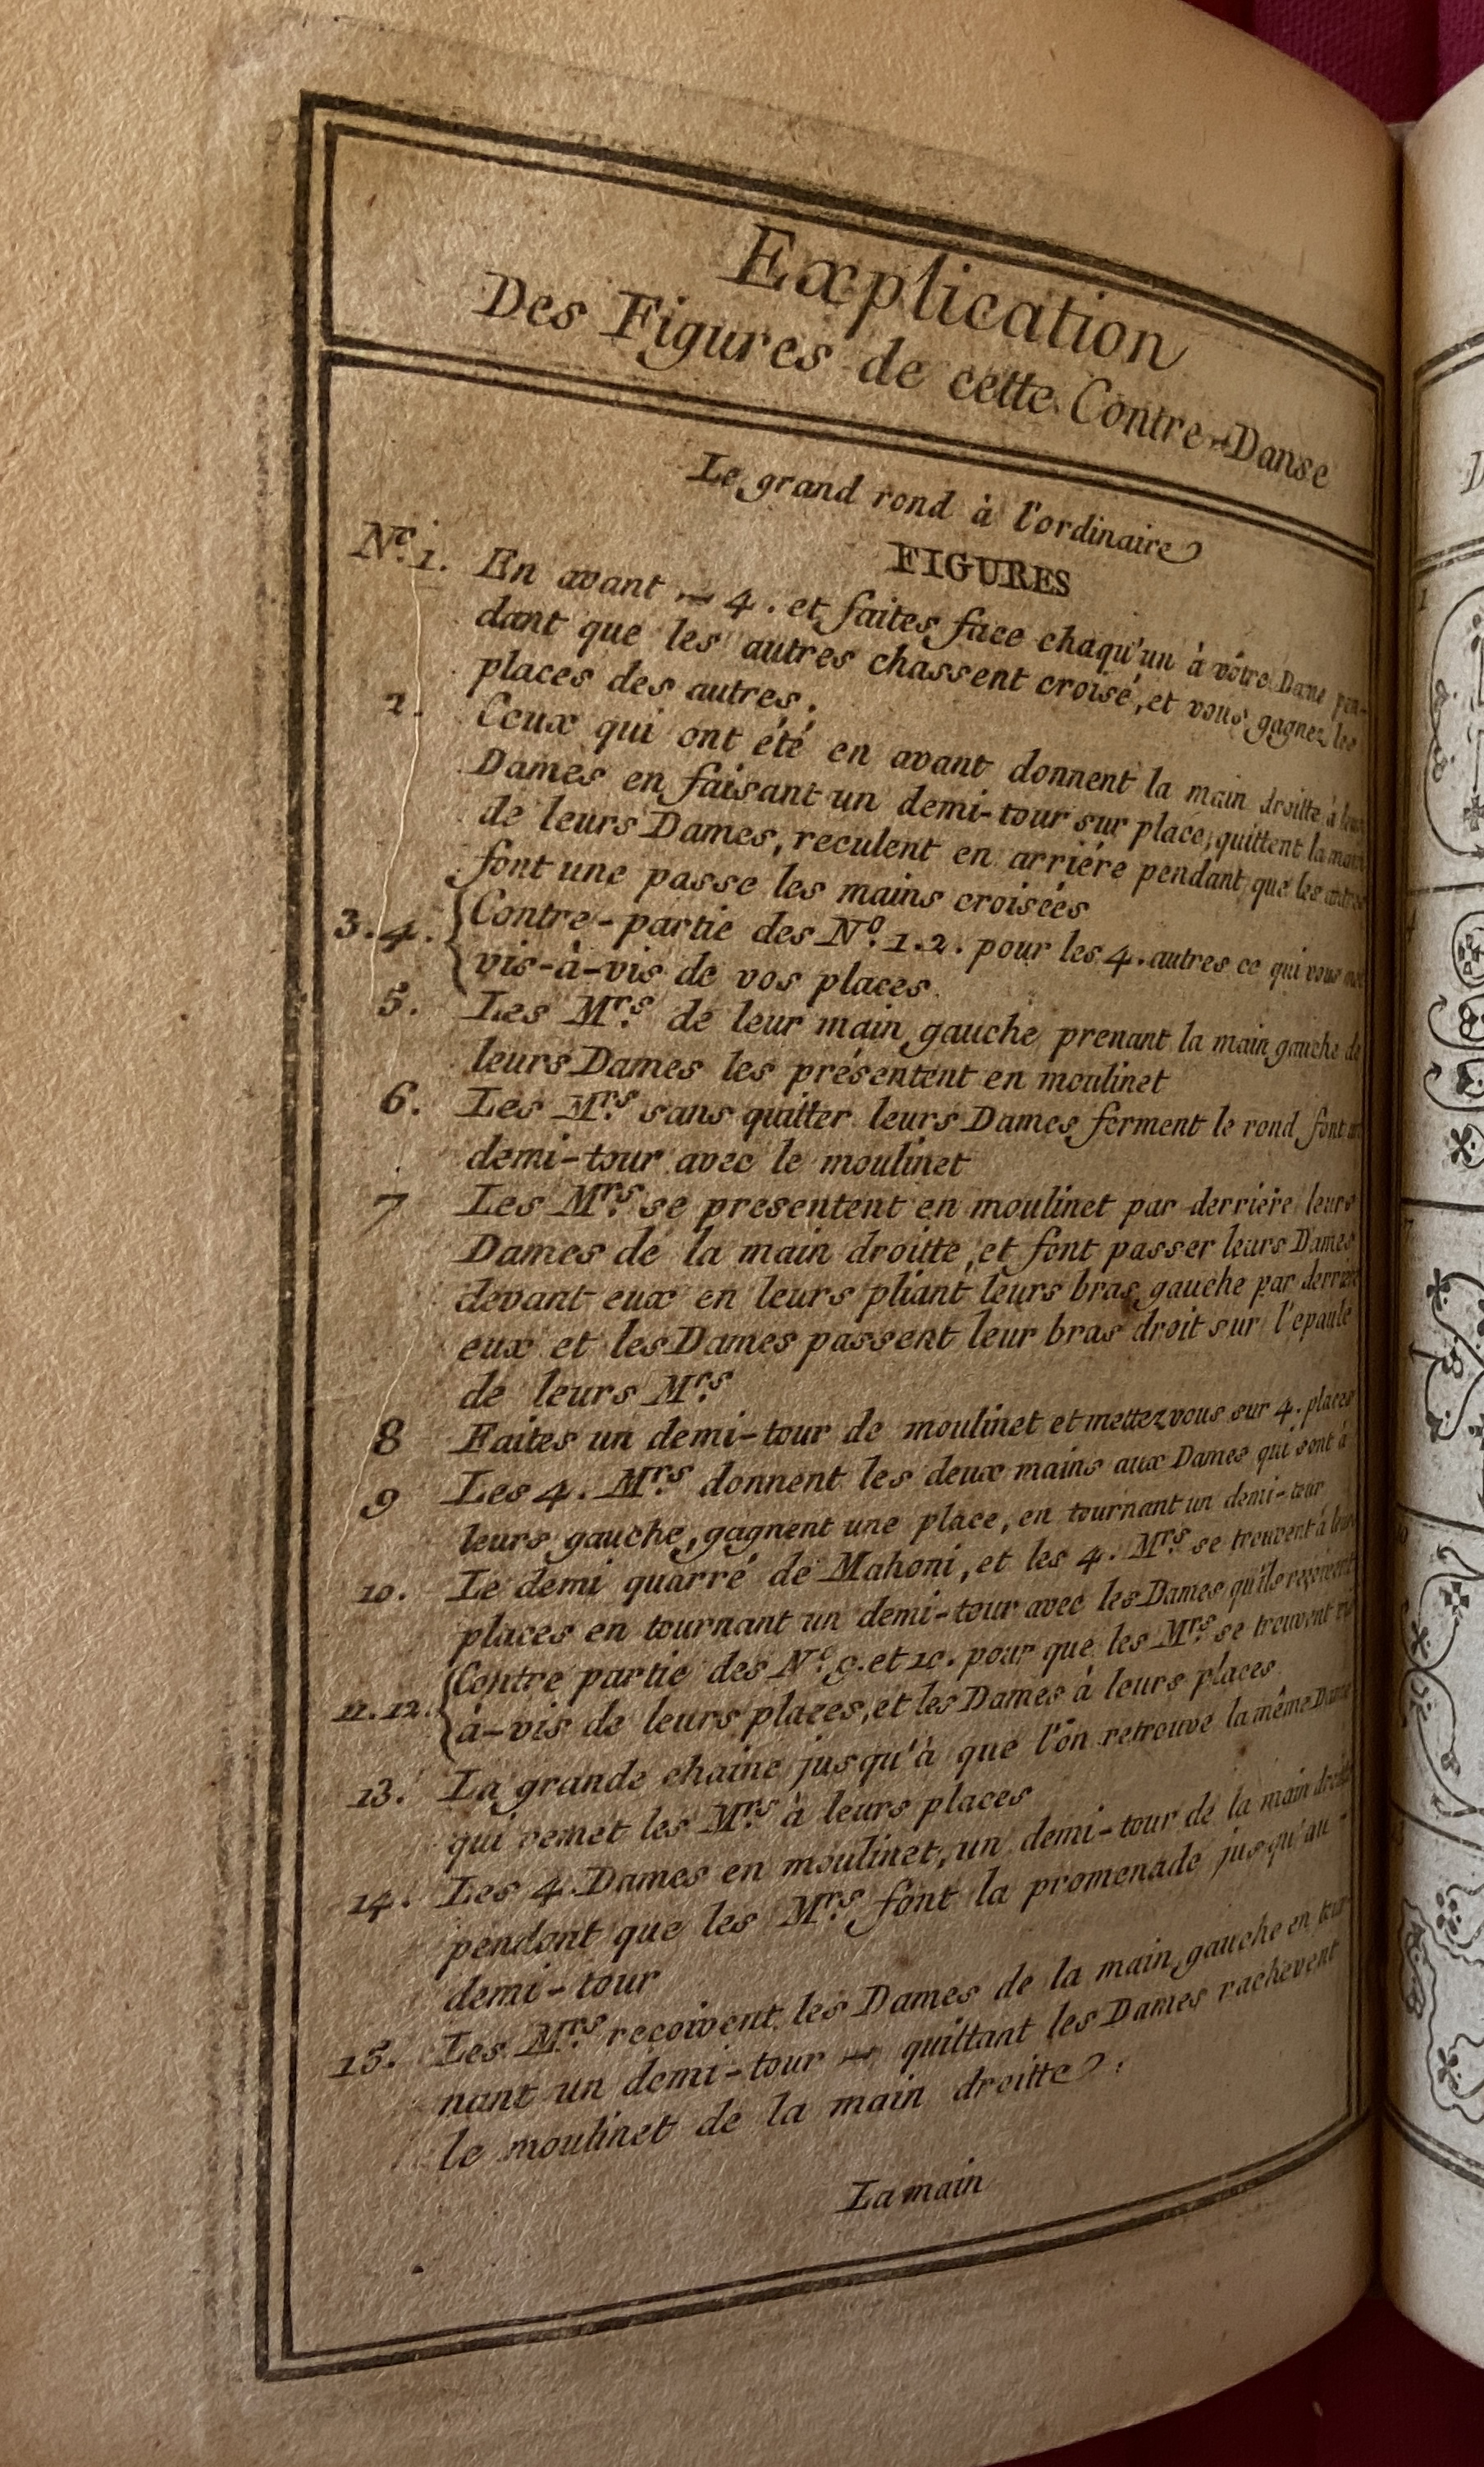 Explication
Des Figures de cette Contre-Danse
Le grand rond à l'ordinaire
FIGURES
No. 1. En avant 4. et faites face chaqu'un à vôtre Dame pen-
dant que les autres chassent croisé, et vous gagnez les
places des autres.
2. Ceux qui ont été en avant donnent la main droitte à leurs
Dames en faisant un demi-tour sur place, quittent la main
de leurs Dames, reculent en arriére pendant que les autres
font une passe les mains croisées
3.4. { Contre-partie des No. 1.2. pour les 4. autres ce qui vous met
vis-à-vis de vos places.
5. Les Mrs. de leur main gauche prenant la main gauche de
leurs Dames les présentent en moulinet
6. Les Mrs. sans quitter leurs Dames ferment le rond font un
demi-tour avec le moulinet
7 Les Mrs. se presentent en moulinet par derriere leurs
Dames de la main droitte, et font passer leurs Dames
devant eux en leurs pliant leurs bras gauche par derriere
eux et les Dames passent leur bras droit sur l'epaule
de leurs Mrs.
8 Faites un demi-tour de moulinet et mettez vous sur 4. places
9 Les 4. Mrs. donnent les deux mains aux Dames qui sont à
leurs gauche, gagnent une place, en tournant un demi-tour
10. Le demi quarré de Mahoni, et les 4. Mrs. se trouvent à leurs
places en tournant un demi-tour avec les Dames qu'ils reçoivent
11.12. { Contre partie des No. 9. et 10. pour que les Mrs. se trouvent vis
à-vis de leurs places, et les Dames à leurs places
13. La grande chaine jusqu'à que l'on retrouve la même Dame
qui remet les Mrs. à leurs places
14. Les 4. Dames en moulinet, un demi-tour de la main droitte
pendant que les Mrs. font la promenade jusqu'au
demi-tour
15. Les Mrs. reçoivent les Dames de la main gauche en tour
nant un demi-tour quittant les Dames rachevent
le moulinet de la main droitte.
La main